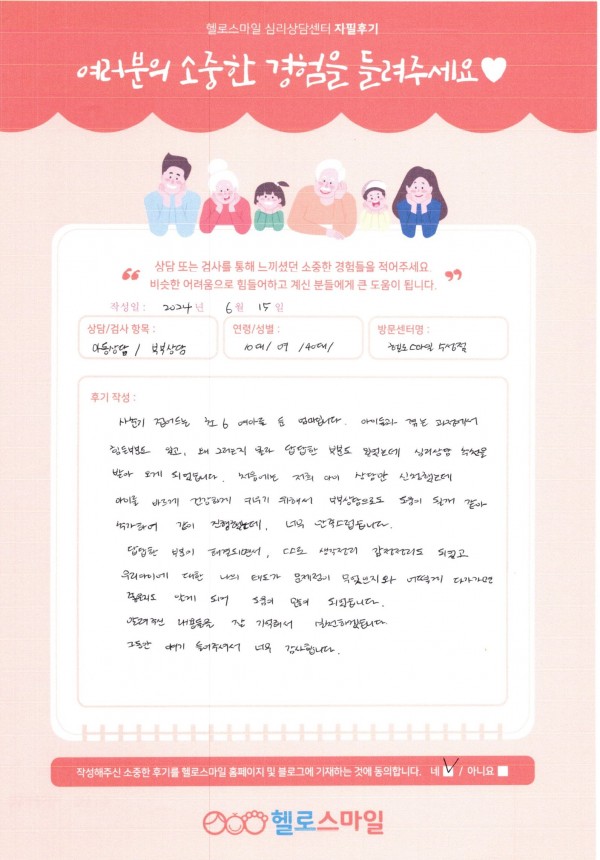 헬로스마일 심리상담센터 자필후기
여러분의 소중한 경험을 들려주세요
“ 상담 또는 검사를 통해 느끼셨던 소중한 경험들을 적어주세요.
비슷한 어려움으로 힘들어하고 계신 분들에게 큰 도움이 됩니다. ”
작성일 : 2024 년 6 월 15 일
상담/검사 항목 :
아동상담 / 부부상담
연령/성별 :
10대 / 여 / 40대 /
방문센터명 :
헬로스마일 수성점
후기 작성 :
사춘기 접어드는 초6 여아를 둔 엄마입니다. 아이들과 겪는 과정에서
힘든부분도 있고, 왜 그러는지 몰라 답답한 부분도 많았는데 심리상담 추천을
받아 오게 되었습니다. 처음에는 저희 아이 상담만 신청했는데
아이를 바르게 건강하게 키우기 위해서 부부상담으로도 도움이 될거 같아
추가하여 같이 진행했는데, 너무 만족스럽습니다.
답답한 부분이 해결되면서, 스스로 생각정리 감정정리도 되었고
우리아이에 대한 나의 태도가 문제점이 무엇인지와 어떻게 다가가면
좋을지도 알게 되어 도움이 많이 되었습니다.
알려주신 내용들을 잘 기억해서 실천하겠습니다
그동안 얘기 들어주셔서 너무 감사합니다.
작성해주신 소중한 후기를 헬로스마일 홈페이지 및 블로그에 기재하는 것에 동의합니다. 네 / 아니요
헬로스마일